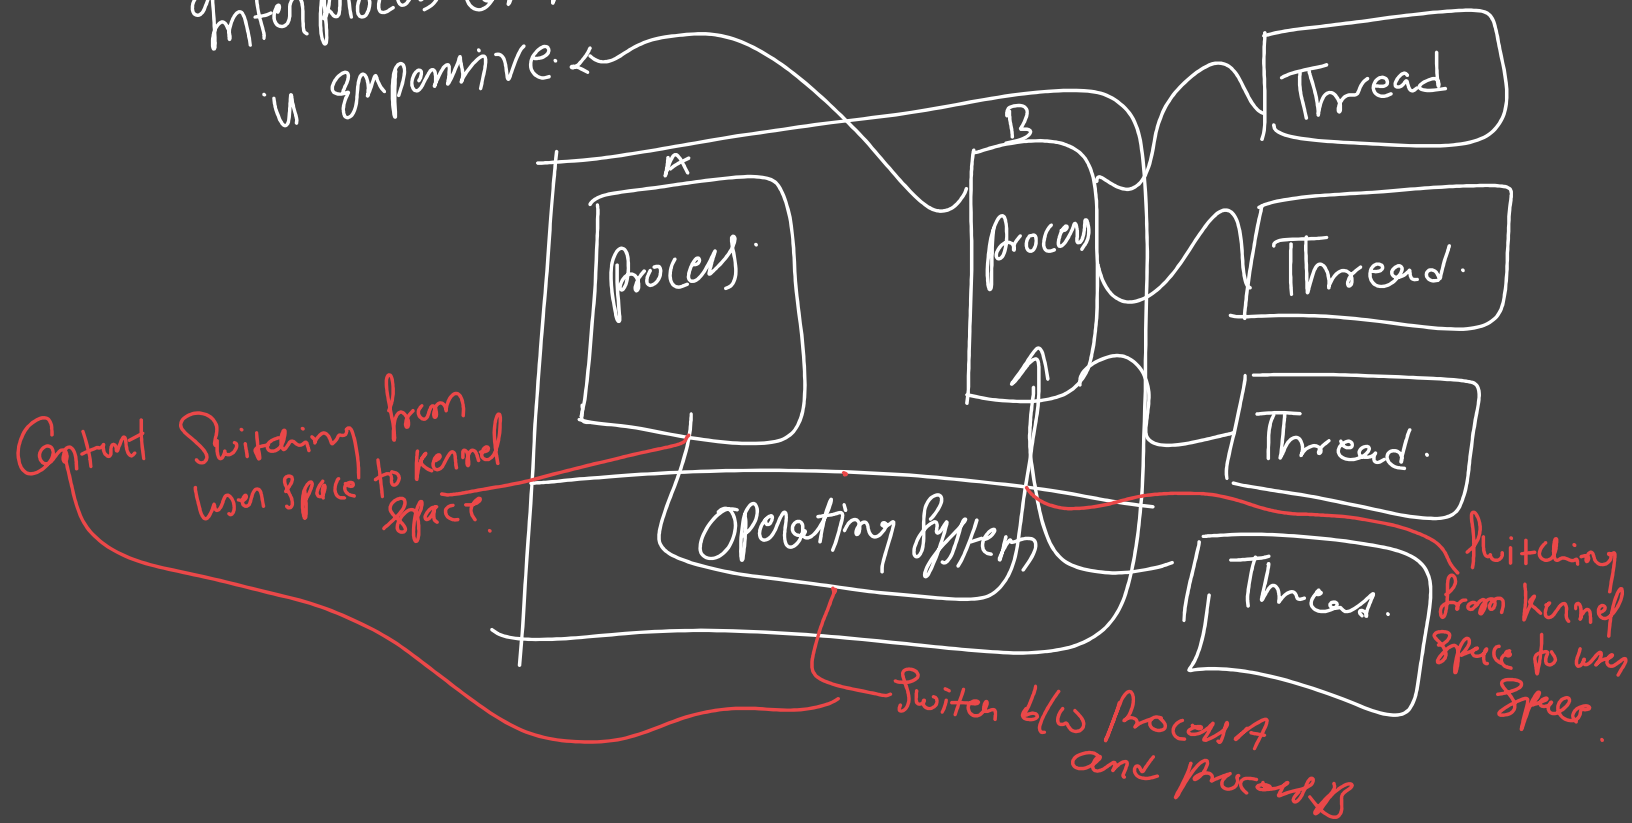 Interprocess
is expensive.
A
B
Process.
Process
Thread
Thread.
Thread.
Thread.
Operating System
Context Switching from
user space to kernel
space.
Switching
from kernel
space to user
space.
Switch b/w Process A
and process B